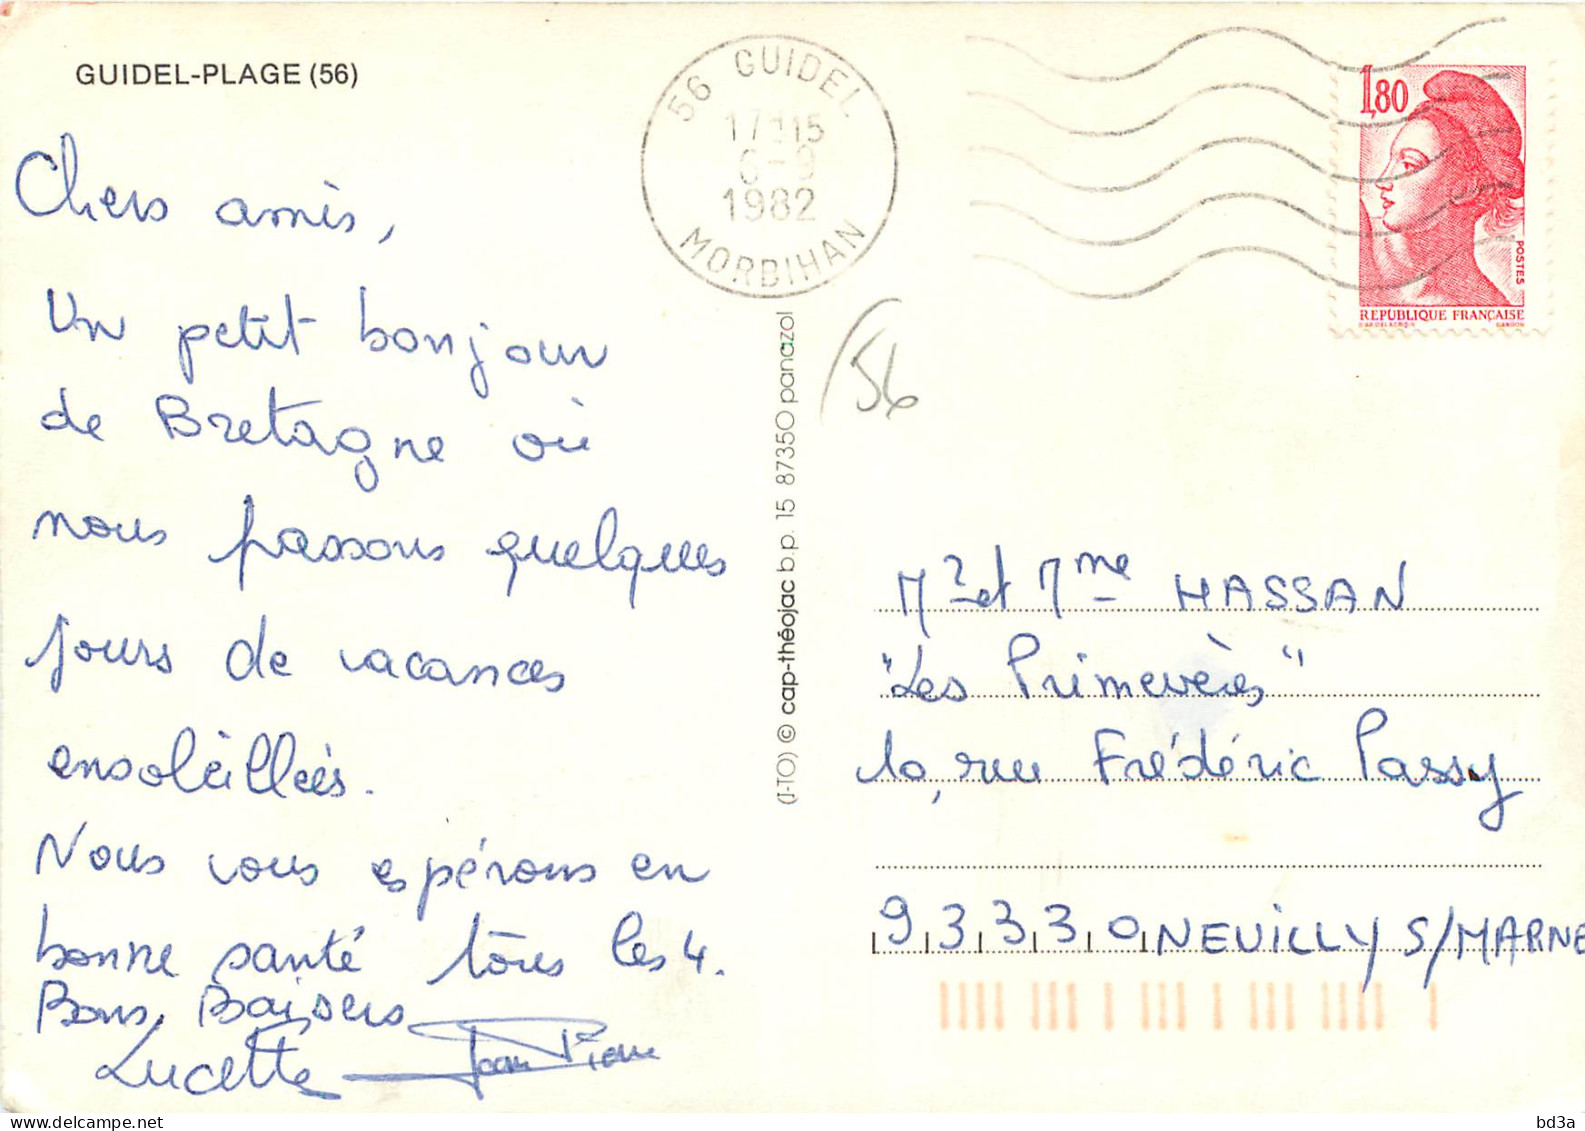 GUIDEL-PLAGE (56)
Chers amis,
Un petit bonjour
de Bretagne où
nous passons quelques
jours de vacances
ensoleillées.
Nous vous espérons en
bonne santé tous les 4.
Bons Baisers
Lucette Jean Pierre
56 GUIDEL
1982
MORBIHAN
1,80
POSTES
REPUBLIQUE FRANÇAISE
D'AP. DELACROIX GANDON
(56
(J-TO) © cap-théojac b.p. 15 87350 panazol
Mr et Mme HASSAN
"Les Primevères"
10, rue Frédéric Passy
93330 NEUILLY S/MARNE
bd3a